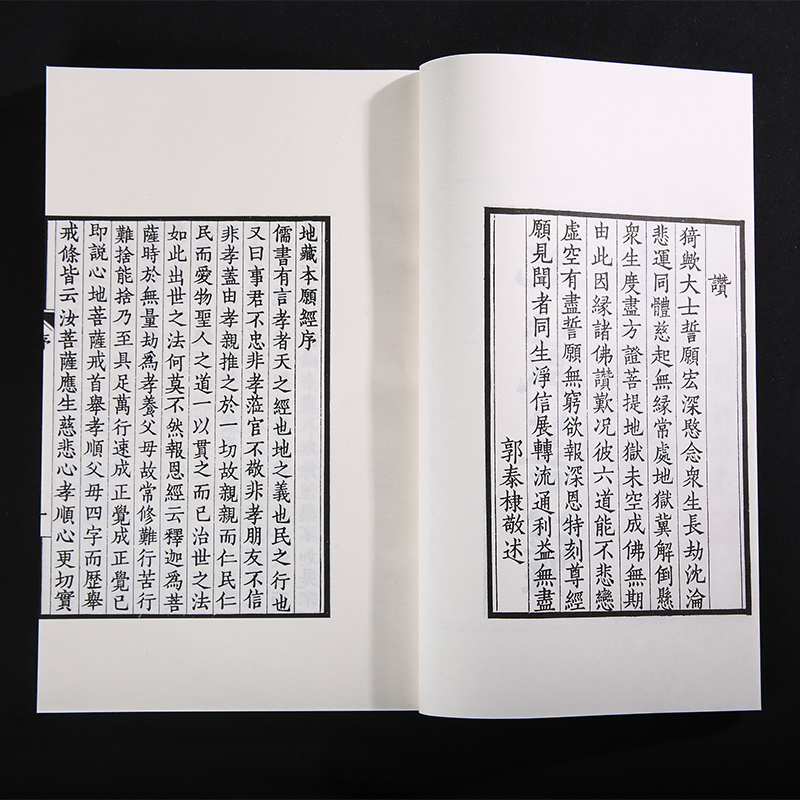 讚
猗歟大士誓願宏深愍念衆生長劫沈淪
悲運同體慈起無緣常處地獄冀解倒懸
衆生度盡方證菩提地獄未空成佛無期
由此因緣諸佛讚歎况彼六道能不悲戀
虛空有盡誓願無窮欲報深恩特刻尊經
願見聞者同生淨信展轉流通利益無盡
郭泰棣敬述
地藏本願經序
儒書有言孝者天之經也地之義也民之行也
又曰事君不忠非孝蒞官不敬非孝朋友不信
非孝蓋由孝親推之於一切故親親而仁民仁
民而愛物聖人之道一以貫之而已治世之法
如此出世之法何莫不然報恩經云釋迦爲菩
薩時於無量劫爲孝養父母故常修難行苦行
難捨能捨乃至具足萬行速成正覺成正覺已
即說心地菩薩戒首舉孝順父母四字而歷舉
戒條皆云汝菩薩應生慈悲心孝順心更切實
序
一